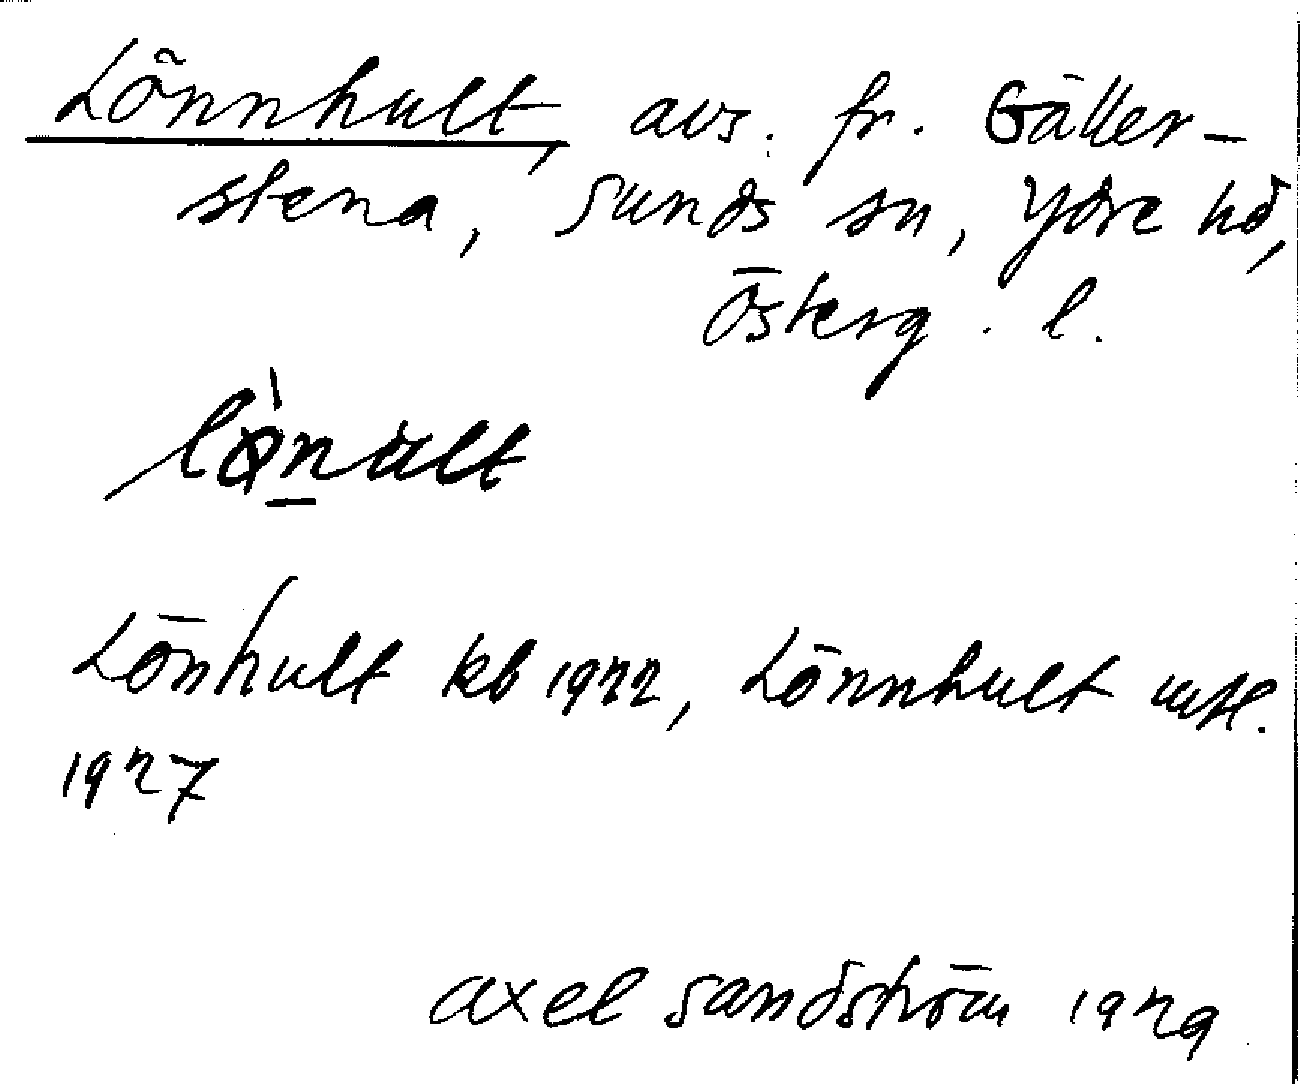 Lönnhult, avs. fr. Gäller-
stena, Sunds sn, Ydre hd,
Österg. l.
Lönhult kb 1922, Lönnhult mtl.
1927
Axel Sandström 1929